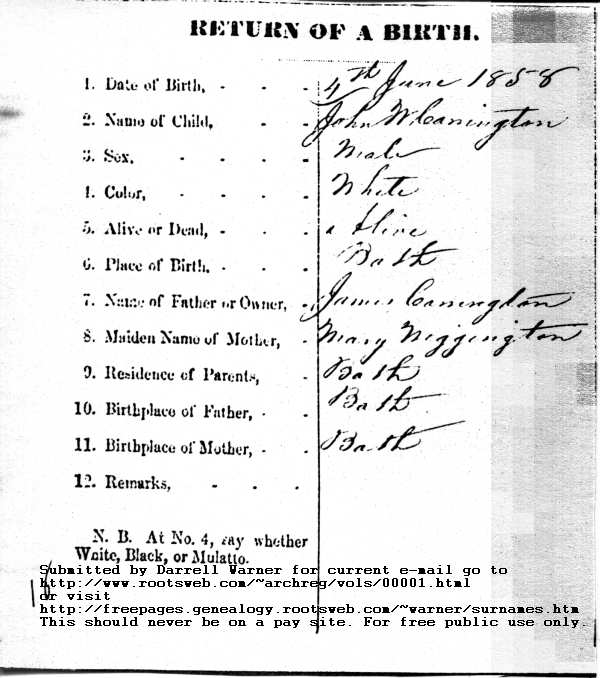 RETURN OF A BIRTH.
1. Date of Birth, - - - 4th June 1858
2. Name of Child, - - John W. Canington
3. Sex, - - - - Male
4. Color, - - - - White
5. Alive or Dead, - - - Alive
6. Place of Birth, - - - Bath
7. Name of Father or Owner, - James Canington
8. Maiden Name of Mother, - Mary Wiggington
9. Residence of Parents, - Bath
10. Birthplace of Father, - - Bath
11. Birthplace of Mother, - - Bath
12. Remarks, - - -
N. B. At No. 4, say whether
White, Black, or Mulatto.
Submitted by Darrell Warner for current e-mail go to
http://www.rootsweb.com/~archreg/vols/00001.html
or visit
http://freepages.genealogy.rootsweb.com/~warner/surnames.htm
This should never be on a pay site. For free public use only.